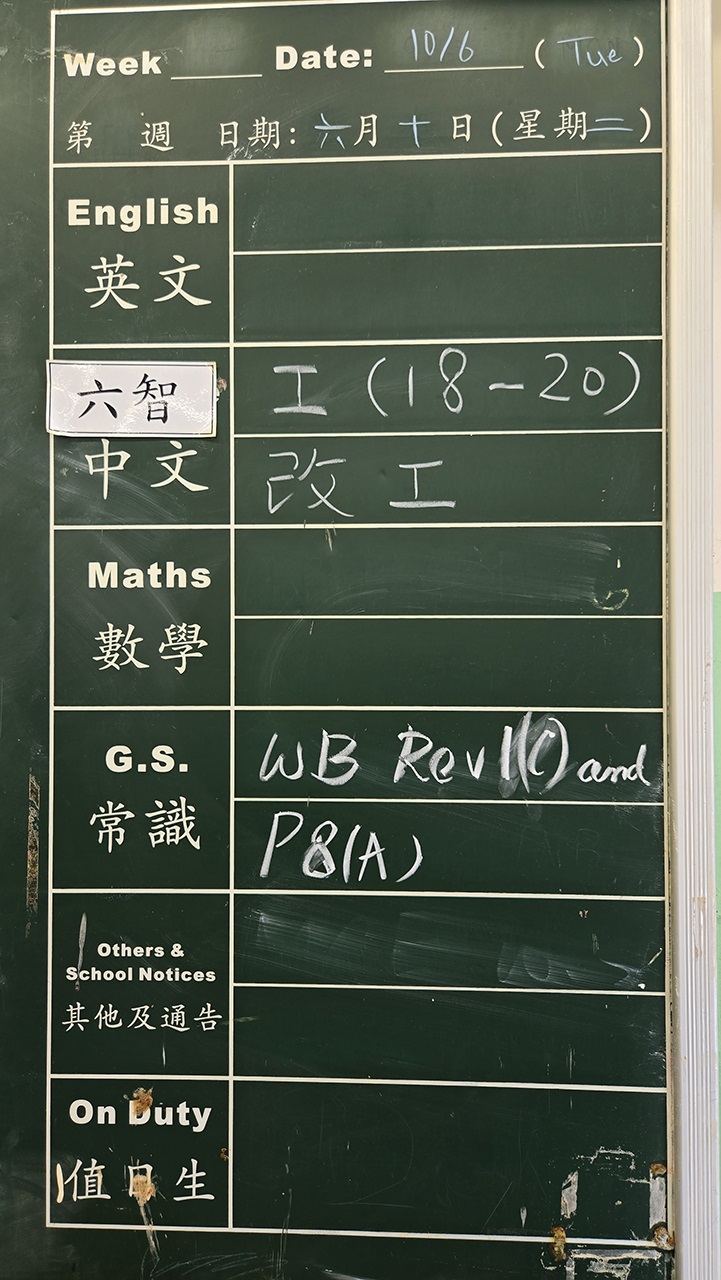 Week ____ Date: 10/6 (Tue)
第 週 日期: 六月十日(星期二)
English
英文
六智
中文
工 (18-20)
改工
Maths
數學
G.S.
常識
WB Rev 1(C) and
P8(A)
Others &
School Notices
其他及通告
On Duty
值日生